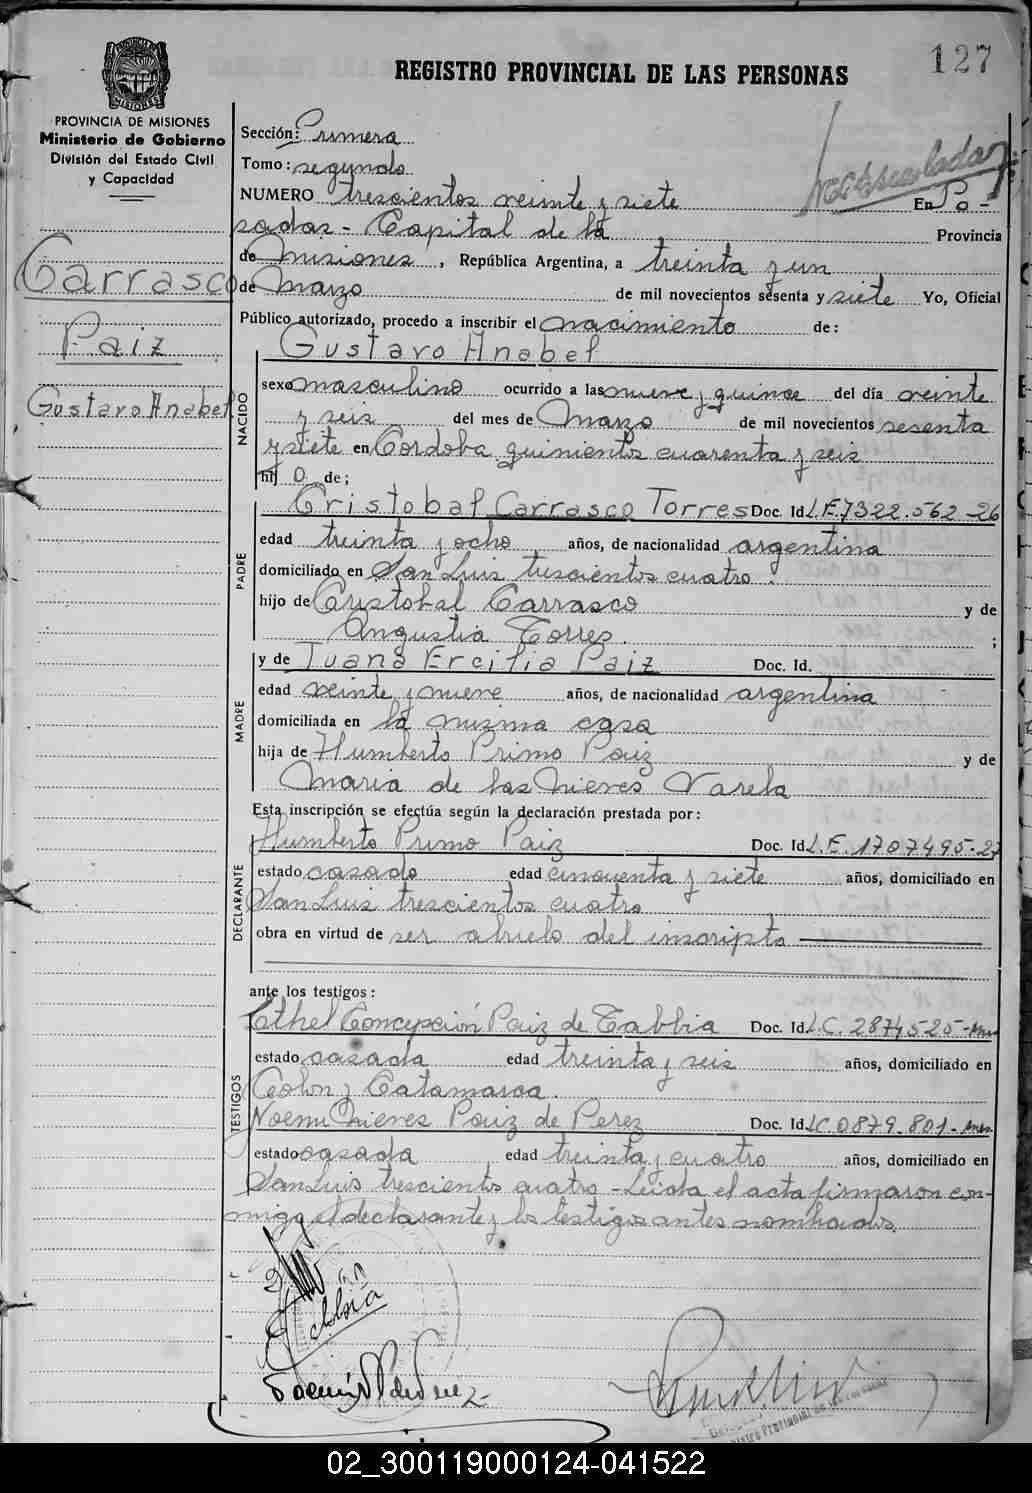 127
REGISTRO PROVINCIAL DE LAS PERSONAS
PROVINCIA DE MISIONES
MISIONES
PROVINCIA DE MISIONES
Ministerio de Gobierno
División del Estado Civil
y Capacidad
Carrasco
Paiz
Gustavo Anabel
Sección: Primera
Tomo: segundo
NUMERO trescientos veinte y siete En Po-
sadas - Capital de la Provincia
de Misiones, República Argentina, a treinta y un
de Marzo de mil novecientos sesenta y siete Yo, Oficial
Público autorizado, procedo a inscribir el nacimiento de:
NACIDO
Gustavo Anabel
sexo masculino ocurrido a las nueve y quince del día veinte
y seis del mes de Marzo de mil novecientos sesenta
y siete en Cordoba quinientos cuarenta y seis
hij o de;
PADRE
Cristobal Carrasco Torres Doc. Id. L.E. 7322.562-26
edad treinta y ocho años, de nacionalidad argentina
domiciliado en San Luis trescientos cuatro.
hijo de Cristobal Carrasco y de
Angustia Torres. ;
MADRE
y de Juana Ercilia Paiz Doc. Id.
edad veinte y nueve años, de nacionalidad argentina
domiciliada en la misma casa
hija de Humberto Primo Paiz y de
Maria de las Nieves Varela
Esta inscripción se efectúa según la declaración prestada por:
DECLARANTE
Humberto Primo Paiz Doc. Id. L.E. 1707495-27
estado casado edad cincuenta y siete años, domiciliado en
San Luis trescientos cuatro
obra en virtud de ser abuelo del inscripto
ante los testigos:
TESTIGOS
Ethel Concepción Paiz de Tabbia Doc. Id. L.C. 2874525-Mnes
estado casada edad treinta y seis años, domiciliado en
Colon y Catamarca.
Noemi Nieves Paiz de Perez Doc. Id. LC 0879.801-Mnes.
estado casada edad treinta y cuatro años, domiciliado en
San Luis trescientos cuatro - Leida el acta firmaron con-
migo el declarante y los testigos antes nombrados.
02_300119000124-041522